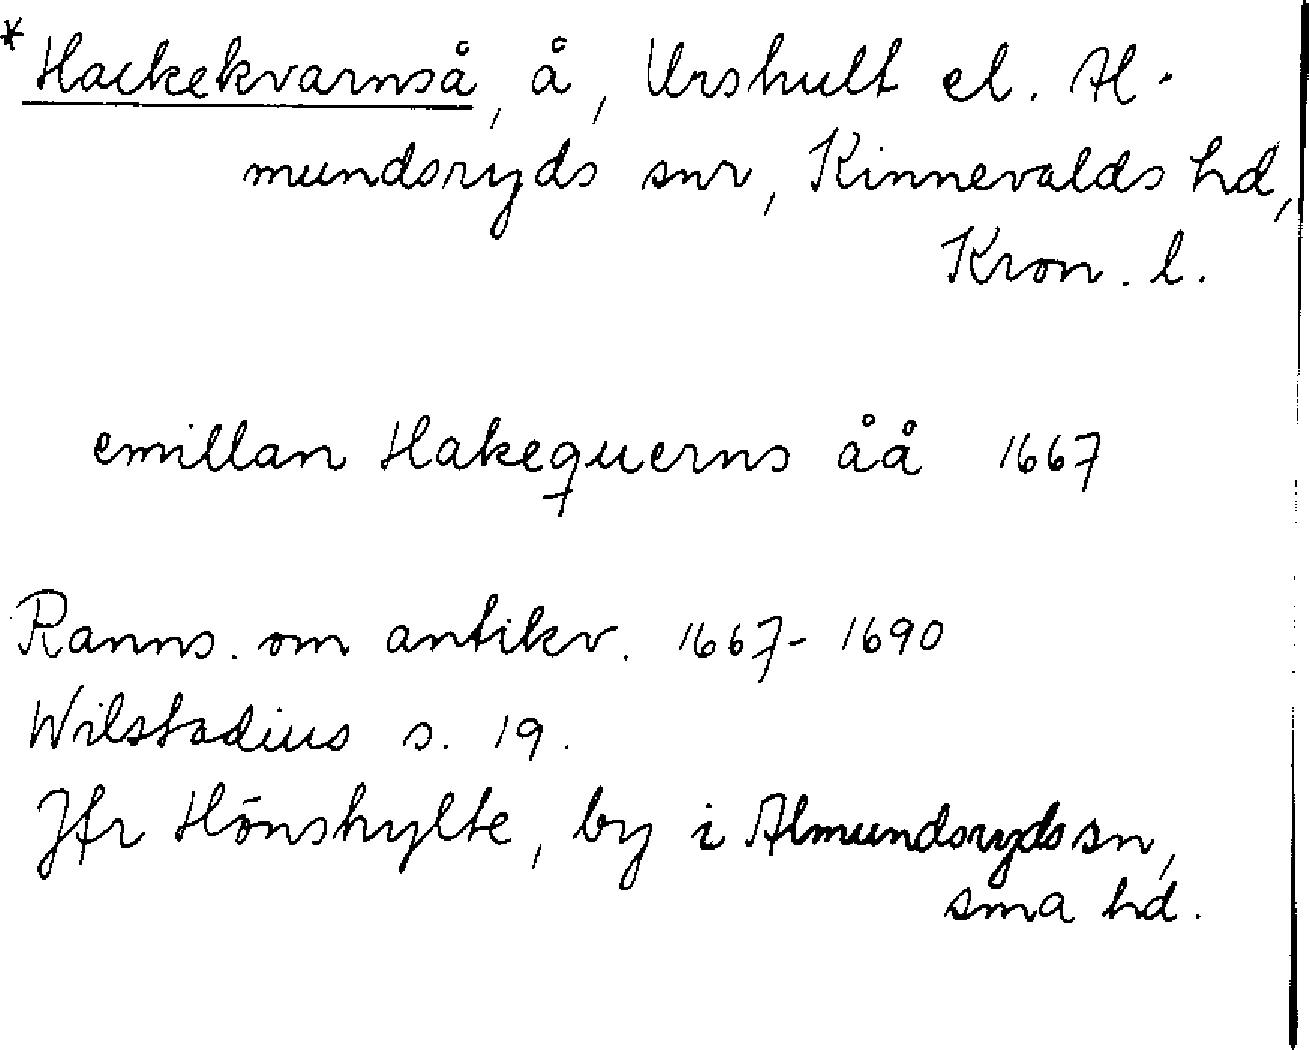 * Hackekvarnså, å, Urshult el. Al-
mundsryds snr, Kinnevalds hd,
Kron. l.
emillan Hakequerns åå 1667
Ranns. om antikv. 1667-1690
Wilstadius s. 19.
Jfr Hönshylte, by i Almundsryds sn,
sma hd.